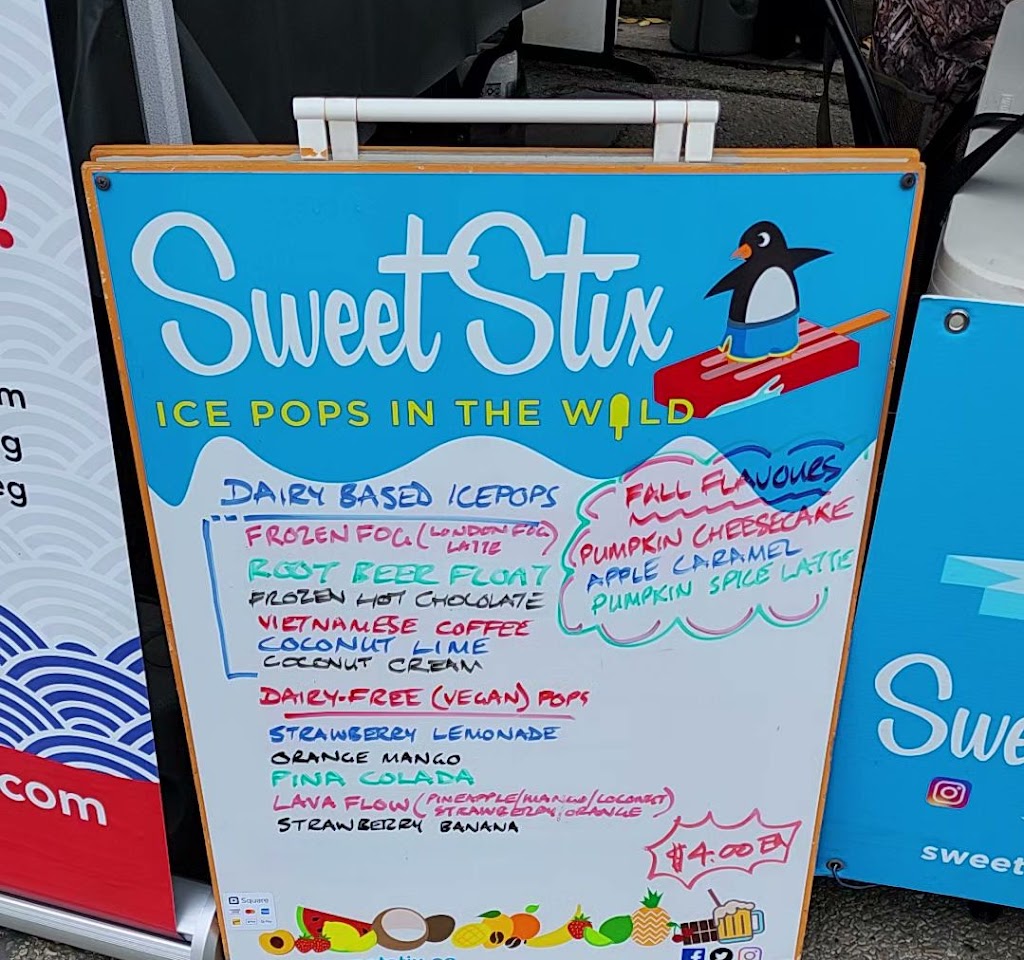 Sweet Stix
ICE POPS IN THE WILD
DAIRY BASED ICEPOPS
FROZEN FOG (LONDON FOG
LATTE)
ROOT BEER FLOAT
FROZEN HOT CHOCOLATE
VIETNAMESE COFFEE
COCONUT LIME
COCONUT CREAM
FALL FLAVOURS
PUMPKIN CHEESECAKE
APPLE CARAMEL
PUMPKIN SPICE LATTE
DAIRY-FREE (VEGAN) POPS
STRAWBERRY LEMONADE
ORANGE MANGO
PINA COLADA
LAVA FLOW (PINEAPPLE/MANGO/COCONUT
STRAWBERRY/ORANGE)
STRAWBERRY BANANA
$4.00 EA
Square
!
m
g
eg
.com
Swe
sweet